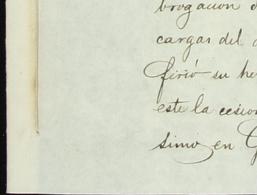 brogacion d
cargas del
firió su he
este la cesion
simo en G